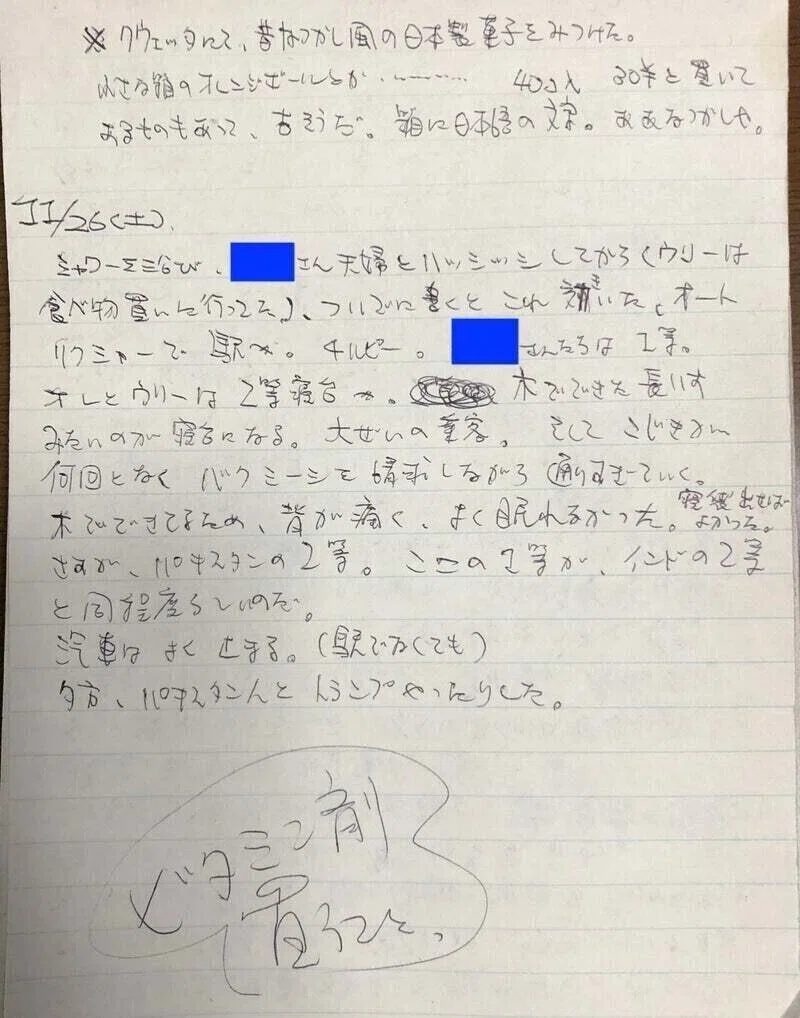 ※クウェッタにて、昔なつかし風の日本製菓子をみつけた。
小さな箱のオレンジボールとか………… 40コ入 30羊と書いて
あるものもあって、古そうだ。箱に日本語の文字。ああなつかしや。
11/26(土).
シャワーを浴び、さん夫婦とハッシッシしてから(ウリーは
食べ物買いに行ってた)、ついでに書くとこれ効いた。オート
リクシャーで駅へ。4ルピー。さんたちは1等。
オレとウリーは2等寝台へ。木でできた長いす
みたいのが寝台になる。大ぜいの乗客。そしてこじきが
何回となくバクシーシを請求しながら通りすぎていく。
木でできてるため、背が痛く、よく眠れなかった。寝袋出せばよかった。
さすが、パキスタンの2等。ここの1等が、インドの2等
と同程度らしいのだ。
汽車はよく止まる。(駅でなくても)
夕方、パキスタン人とトランプやったりした。
ビタミン剤
買うこと。